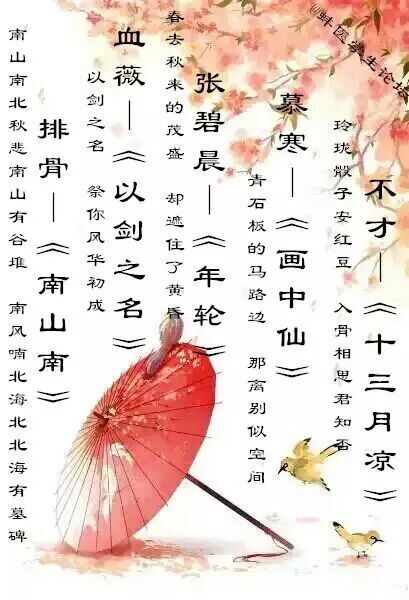 @蚌医学生论坛
不才—《十三月凉》
玲珑骰子安红豆 入骨相思君知否
慕寒—《画中仙》
青石板的马路边 那离别似空间
张碧晨—《年轮》
春去秋来的茂盛 却遮住了黄昏
血薇—《以剑之名》
以剑之名 祭你风华初成
排骨—《南山南》
南山南北秋悲南山有谷堆 南风喃北海北北海有墓碑